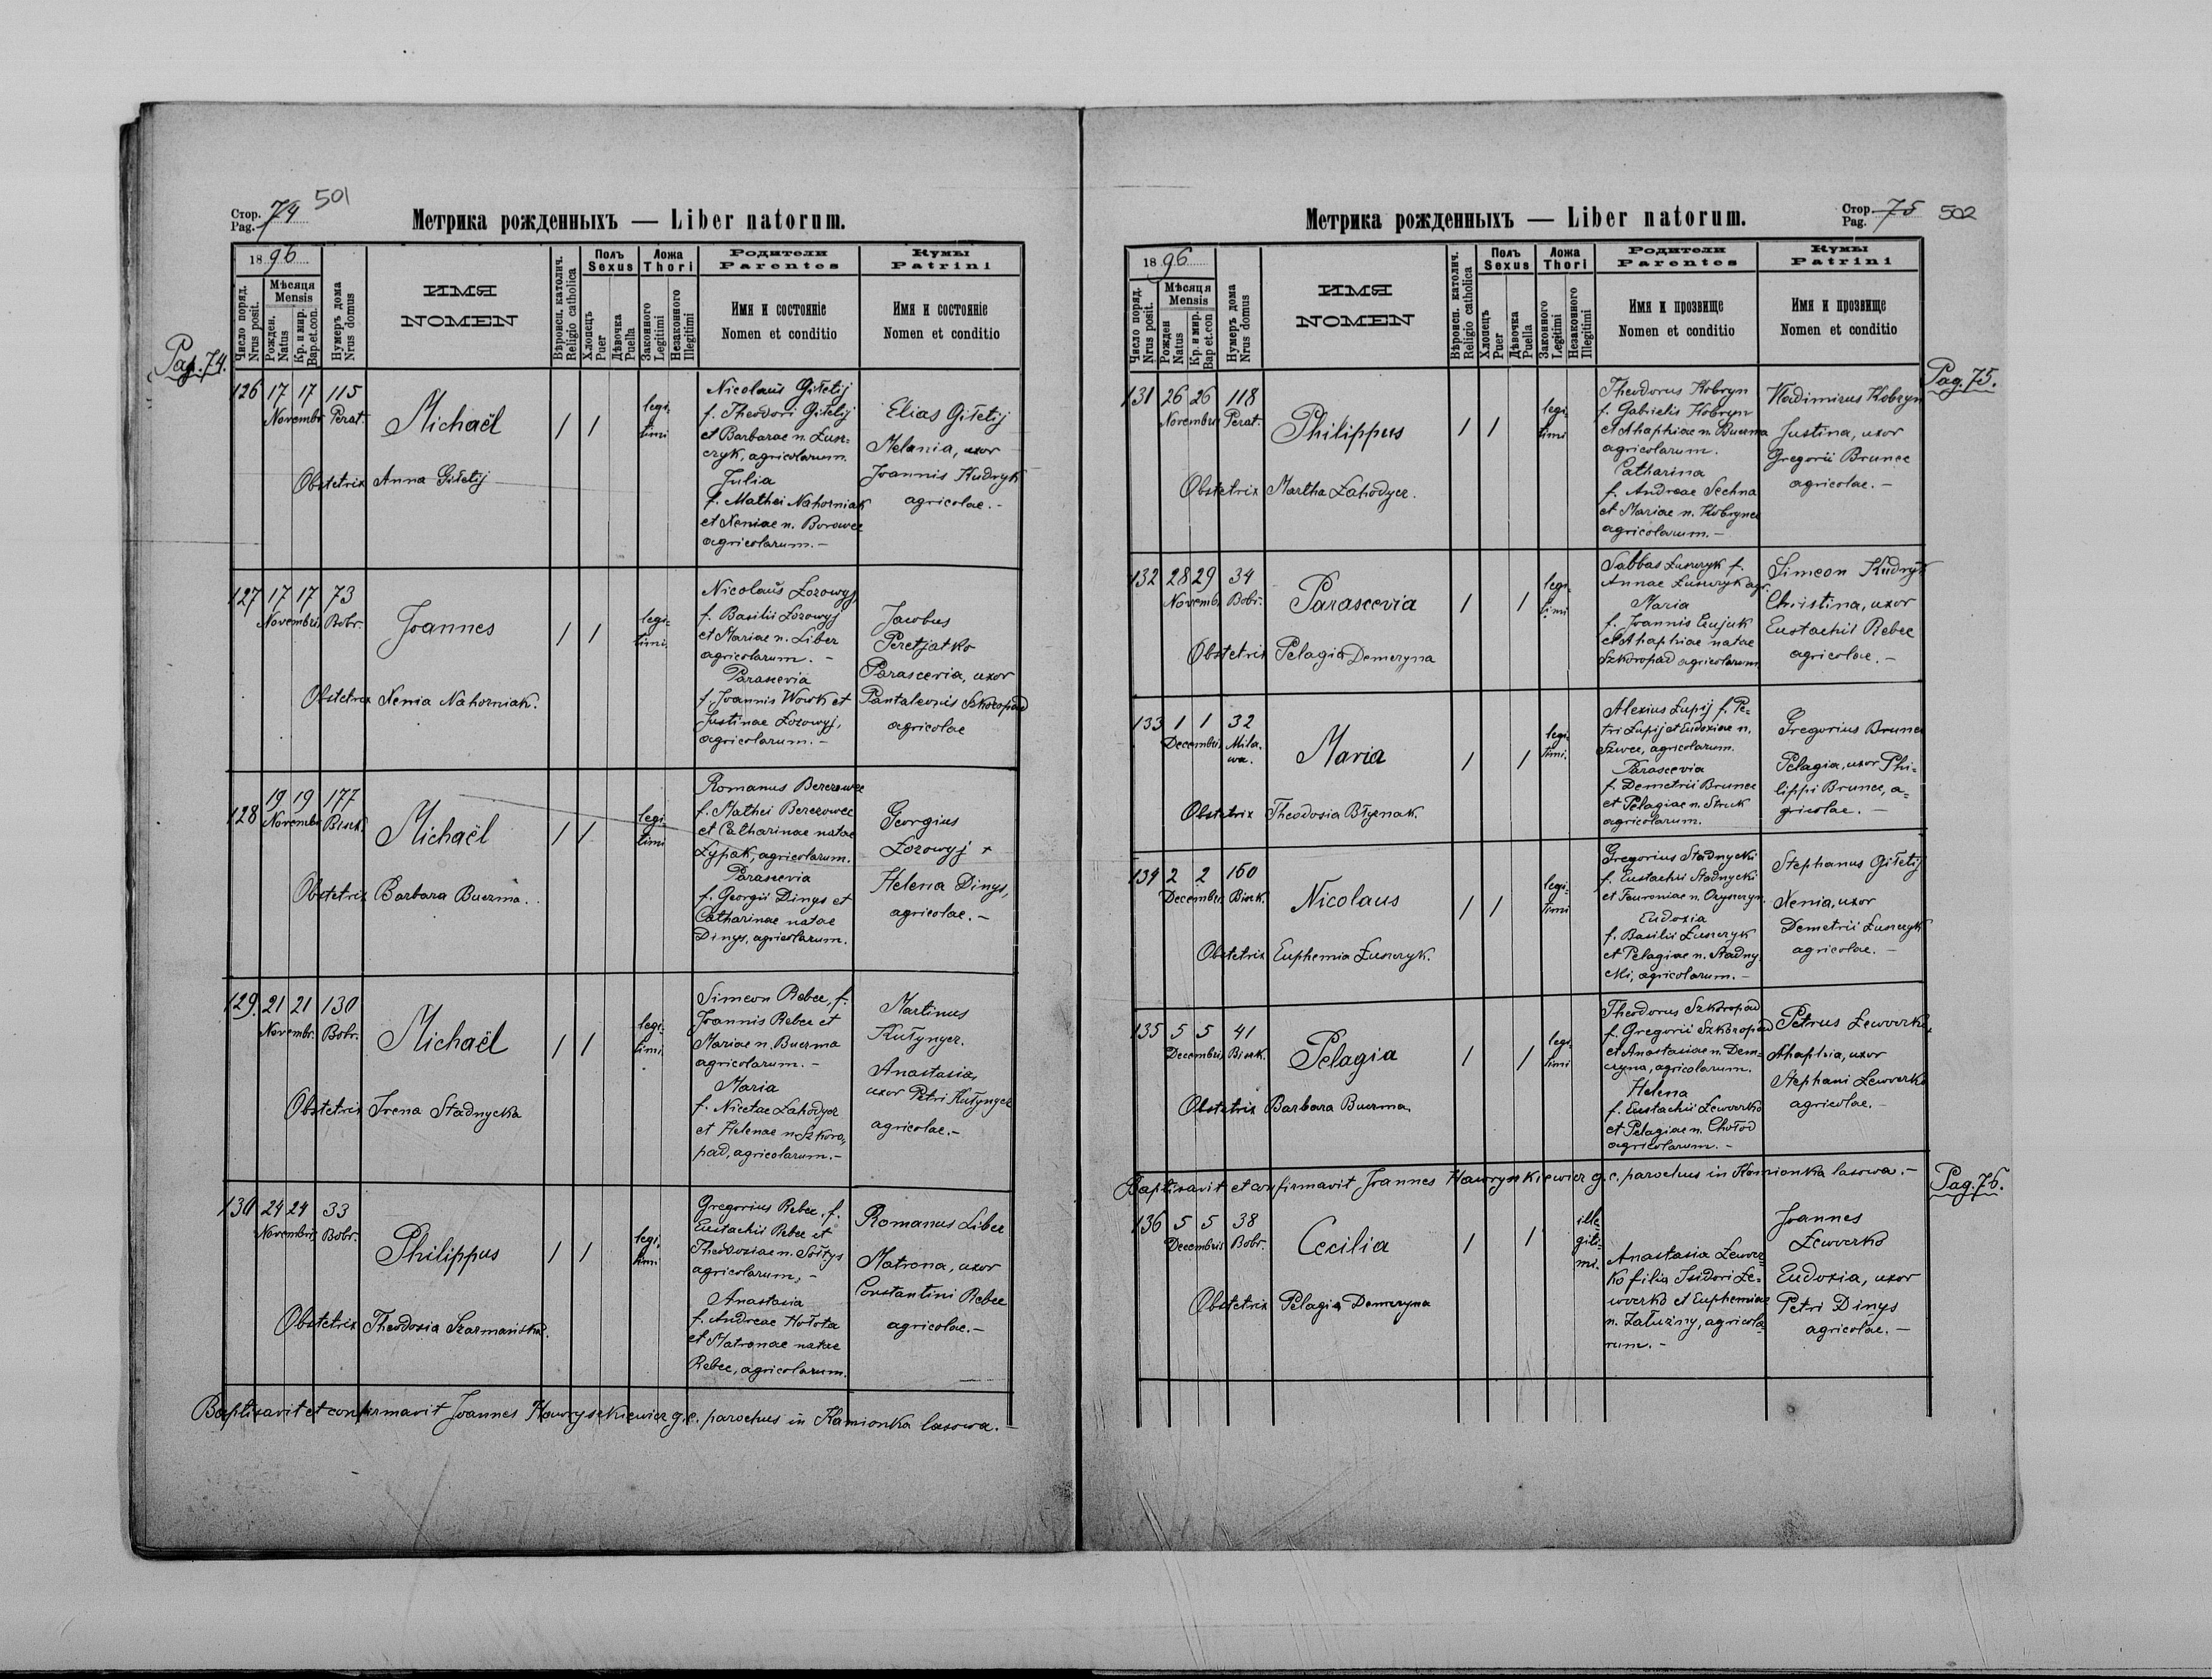 Стор. Pag. 74 501
Метрика рожденныхъ — Liber natorum.
Pag. 74.
1896
Число поряд. Nrus posit.
Мѣсяця Mensis
Рожден. Natus
Кр. и мир. Bap. et. con.
Нумеръ дома Nrus domus
ИМЯ
NOMEN
Вѣроисп. католич. Religio catholica
Полъ Sexus
Хлопецъ Puer
Дѣвочка Puella
Ложа Thori
Законного Legitimi
Незаконного Illegitimi
Родители
Parentes
Имя и состояніе
Nomen et conditio
Кумы
Patrini
Имя и состояніе
Nomen et conditio
126 17 17 115
Novembr. Perat.
Michaël
1 1
legi-
timi
Nicolaus Giłetij
f. Theodori Giłetij
et Barbarae n. Łusz-
czyk, agricolarum.
Julia
f. Mathei Nahorniak
et Xeniae n. Borowec
agricolarum. –
Elias Giłetij
Melania, uxor
Joannis Kudryk
agricolae. –
Obstetrix Anna Giłetij
127 17 17 73
Novembris Bobr.
Joannes
1 1
legi-
timi.
Nicolaus Łozowyj
f. Basilii Łozowyj
et Mariae n. Liber
agricolarum. –
Parascevia
f. Joannis Wowk et
Justinae Łozowyj,
agricolarum. –
Jacobus
Peretjatko
Parascevia, uxor
Pantaleonis Szkoropad
agricolae
Obstetrix Xenia Nahorniak.
128 19 19 177
Novembr. Bisek.
Michaël
1 1
legi-
timi
Romanus Berezowec
f. Mathei Berezowec
et Catharinae natae
Łypak, agricolarum.
Parascevia
f. Georgii Dinys et
Catharinae natae
Dinys, agricolarum.
Georgius
Łozowyj +
Helena Dinys,
agricolae. –
Obstetrix Barbara Buerma.
129. 21 21 130
Novembr. Bobr.
Michaël
1 1
legi-
timi
Simeon Rebec, f.
Joannis Rebec et
Mariae n. Buerma
agricolarum. –
Maria
f. Nicetae Łahodycz
et Helenae n. Szkoro-
pad, agricolarum. –
Martinus
Kułynycz.
Anastasia,
uxor Petri Kułynycz
agricolae. –
Obstetrix Irena Stadnycka
130 24 24 33
Novembris Bobr.
Philippus
1 1
legi-
timi
Gregorius Rebec, f.
Eustachii Rebec et
Theodosiae n. Sołtys
agricolarum, –
Anastasia
f. Andreae Hołota
et Matronae natae
Rebec, agricolarum.
Romanus Liber
Matrona, uxor
Constantini Rebec
agricolae. –
Obstetrix Theodosia Szarmańska.
Baptisavit et confirmavit Joannes Hawryszkiewicz g. c. parochus in Kamionka lasowa. –
Метрика рожденныхъ — Liber natorum.
Стор. Pag. 75 502
Pag. 75.
1896
Число поряд. Nrus posit.
Мѣсяця Mensis
Рожден Natus
Кр. и мир. Bap. et. con
Нумеръ дома Nrus domus
ИМЯ
NOMEN
Вѣроисп. католич. Religio catholica
Полъ Sexus
Хлопецъ Puer
Дѣвочка Puella
Ложа Thori
Законного Legitimi
Незаконного Illegitimi
Родители
Parentes
Имя и прозвище
Nomen et conditio
Кумы
Patrini
Имя и прозвище
Nomen et conditio
131 26 26 118
Novembris Perat.
Philippus
1 1
legi-
timi
Theodorus Kobryn
f. Gabrielis Kobryn
et Ahaphiae n. Buerma
agricolarum.
Catharina
f. Andreae Sechna
et Mariae n. Kobryn
agricolarum. –
Wladimirus Kobryn
Justina, uxor
Gregorii Brunec
agricolae. –
Obstetrix Martha Łahodycz.
132 28 29 34
Novemb. Bobr.
Parascevia
1 1
legi-
timi
Sabbas Łuszczyk f.
Annae Łuszczyk agr.
Maria
f. Joannis Gujuk
et Ahaphiae natae
Szkoropad agricolarum
Simeon Kudryk
Christina, uxor
Eustachii Rebec
agricolae. –
Obstetrix Pelagia Demczyna
133 1 1 32
Decembris Mila-
wa.
Maria
1 1
legi-
timi.
Alexius Łupij f. Pe-
tri Łupij et Eudoxiae n.
Szwec, agricolarum.
Parascevia
f. Demetrii Brunec
et Pelagiae n. Struk
agricolarum.
Gregorius Brunec
Pelagia, uxor Phi-
lippi Brunec, a-
gricolae. –
Obstetrix Theodosia Błyznak.
134 2 2 160
Decembris Bisek.
Nicolaus
1 1
legi-
timi
Gregorius Stadnycki
f. Eustachii Stadnycki
et Feuroniae n. Onyszczyn
Eudoxia
f. Basilii Łuszczyk
et Pelagiae n. Stadny-
cki, agricolarum. –
Stephanus Giłetij
Xenia, uxor
Demetrii Łuszczyk
agricolae. –
Obstetrix Euphemia Łuszczyk.
135 5 5 41
Decembris Bisek.
Pelagia
1 1
legi-
timi
Theodorus Szkoropad
f. Gregorii Szkoropad
et Anastasiae n. Dem-
czyna, agricolarum.
Helena
f. Eustachii Łewoerko
et Pelagiae n. Chołod
agricolarum. –
Petrus Łewoerko,
Ahaphia, uxor
Stephani Łewoerko
agricolae. –
Obstetrix Barbara Buerma.
Baptisavit et confirmavit Joannes Hawryszkiewicz g. c. parochus in Kamionka lasowa. –
Pag. 76.
136 5 5 38
Decembris Bobr.
Cecilia
1 1
ille-
giti-
mi.
Anastasia Łewoer-
ko filia Isidori Łe-
woerko et Euphemiae
n. Załużny, agricola-
rum. –
Joannes
Łewoerko
Eudoxia, uxor
Petri Dinys
agricolae. –
Obstetrix Pelagia Demczyna